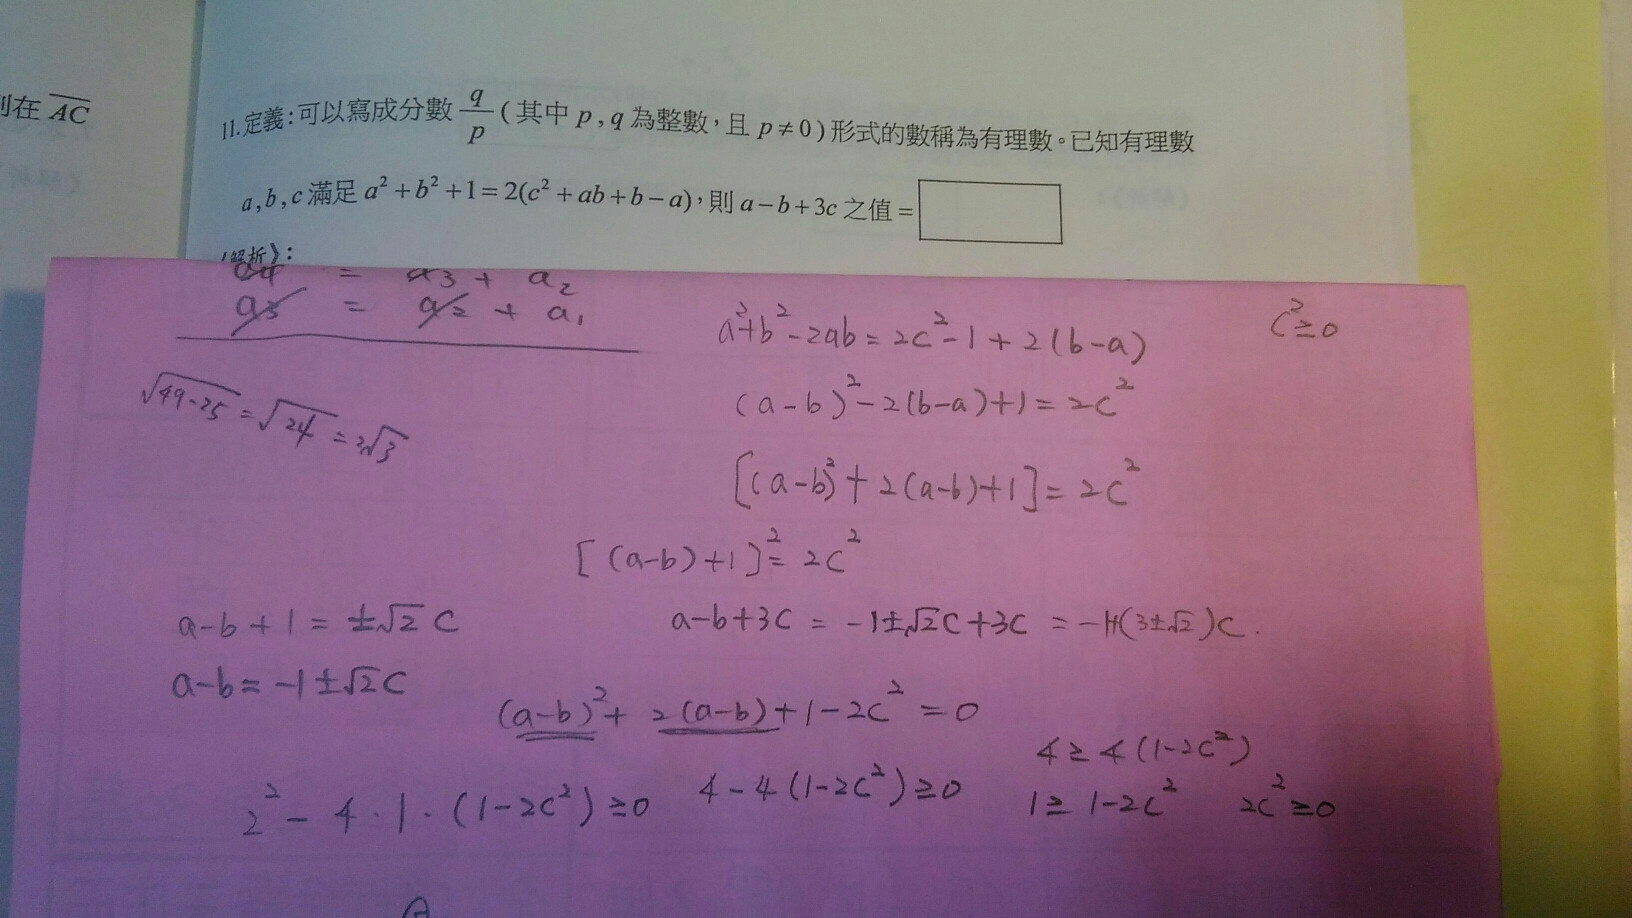 則在 AC
11.定義:可以寫成分數 q/p (其中 p,q 為整數,且 p≠0)形式的數稱為有理數。已知有理數
a,b,c 滿足 a²+b²+1=2(c²+ab+b-a),則 a-b+3c 之值=
《解析》:
a4 = a3 + a2
a3 = a2 + a1
a²+b²-2ab=2c²-1+2(b-a)
c²≥0
√49-25=√24=2√3
(a-b)²-2(b-a)+1=2c²
[(a-b)²+2(a-b)+1]=2c²
[(a-b)+1]²=2c²
a-b+1=±√2c
a-b+3c=-1±√2c+3c=-1+(3±√2)c.
a-b=-1±√2c
(a-b)²+2(a-b)+1-2c²=0
4≥4(1-2c²)
2²-4·1·(1-2c²)≥0
4-4(1-2c²)≥0
1≥1-2c²
2c²≥0